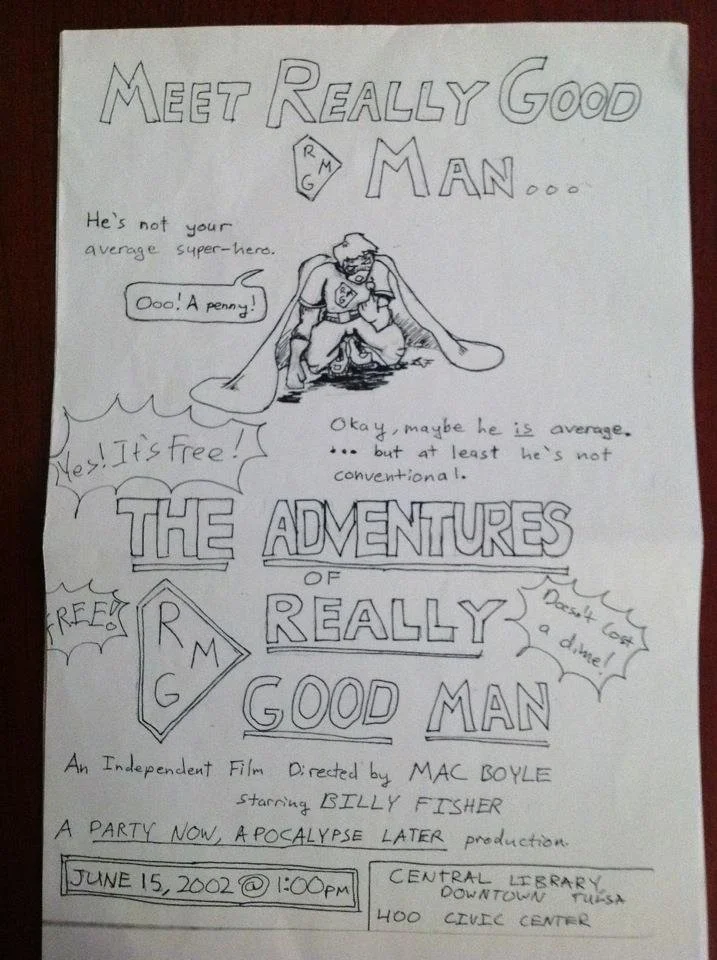 MEET REALLY GOOD
R M G
MAN...
He's not your
average super-hero.
Ooo! A penny!
RMG
BF
Okay, maybe he is average.
... but at least he's not
conventional.
Yes! It's Free!
THE ADVENTURES
OF
REALLY
GOOD MAN
FREE!!
R M G
Doesn't Cost
a dime!
An Independent Film Directed by MAC BOYLE
starring BILLY FISHER
A PARTY NOW, APOCALYPSE LATER production.
JUNE 15, 2002 @ 1:00PM
CENTRAL LIBRARY
DOWNTOWN TULSA
400 CIVIC CENTER